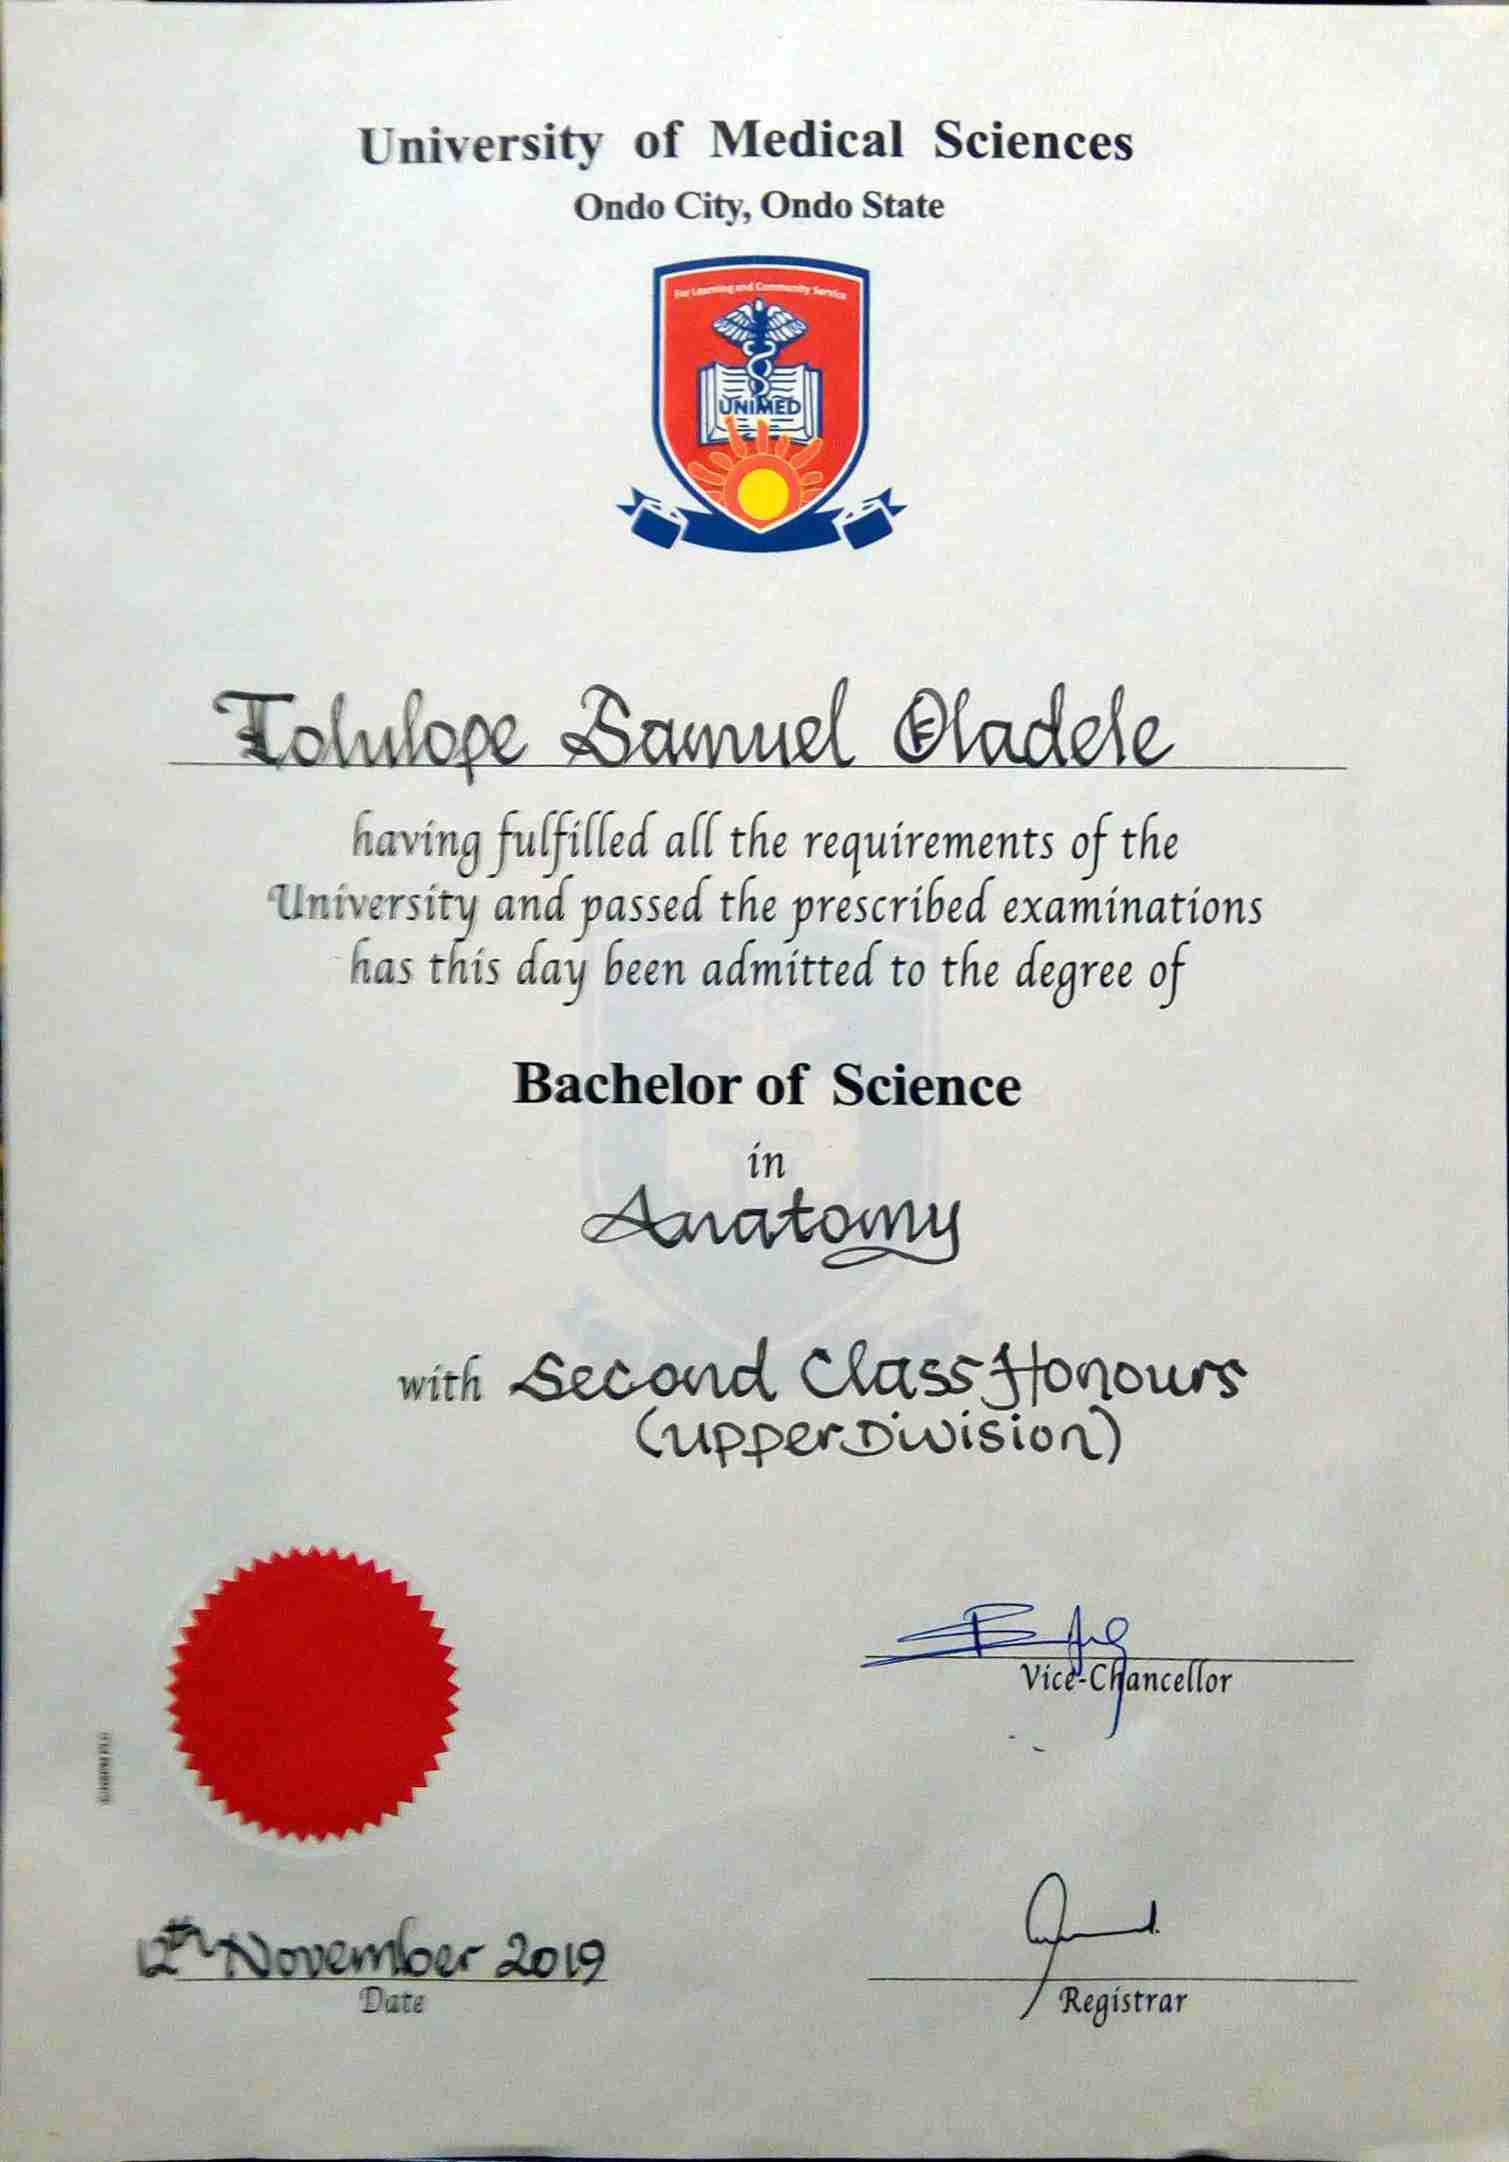 University of Medical Sciences
Ondo City, Ondo State
For Learning and Community Service
UNIMED
Tolulope Samuel Oladele
having fulfilled all the requirements of the
University and passed the prescribed examinations
has this day been admitted to the degree of
Bachelor of Science
in
Anatomy
with Second Class Honours
(Upper Division)
Vice-Chancellor
12th November 2019
Date
Registrar